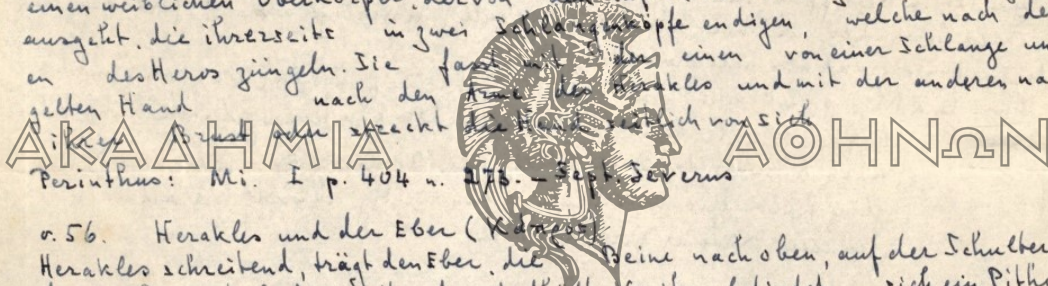 einen weiblichen Oberkörper, davon
ausgeht, die ihrerseits in zwei Schlangenköpfe endigen, welche nach de
en des Heros züngeln. Sie fasst mit der einen von einer Schlange um
gelten Hand nach den Arme des Herakles und mit der anderen na
ihrer Brust oder streckt die Hand seitlich von sich
ΑΚΑΔΗΜΙΑ ΑΘΗΝΩΝ
Perinthus: Mi. I p. 404 n. 273. – Sept. Severus
σ. 56. Herakles und der Eber (Κάπρος)
Herakles schreitend, trägt den Eber, die Beine nach oben, auf der Schulter
sich ein Pith